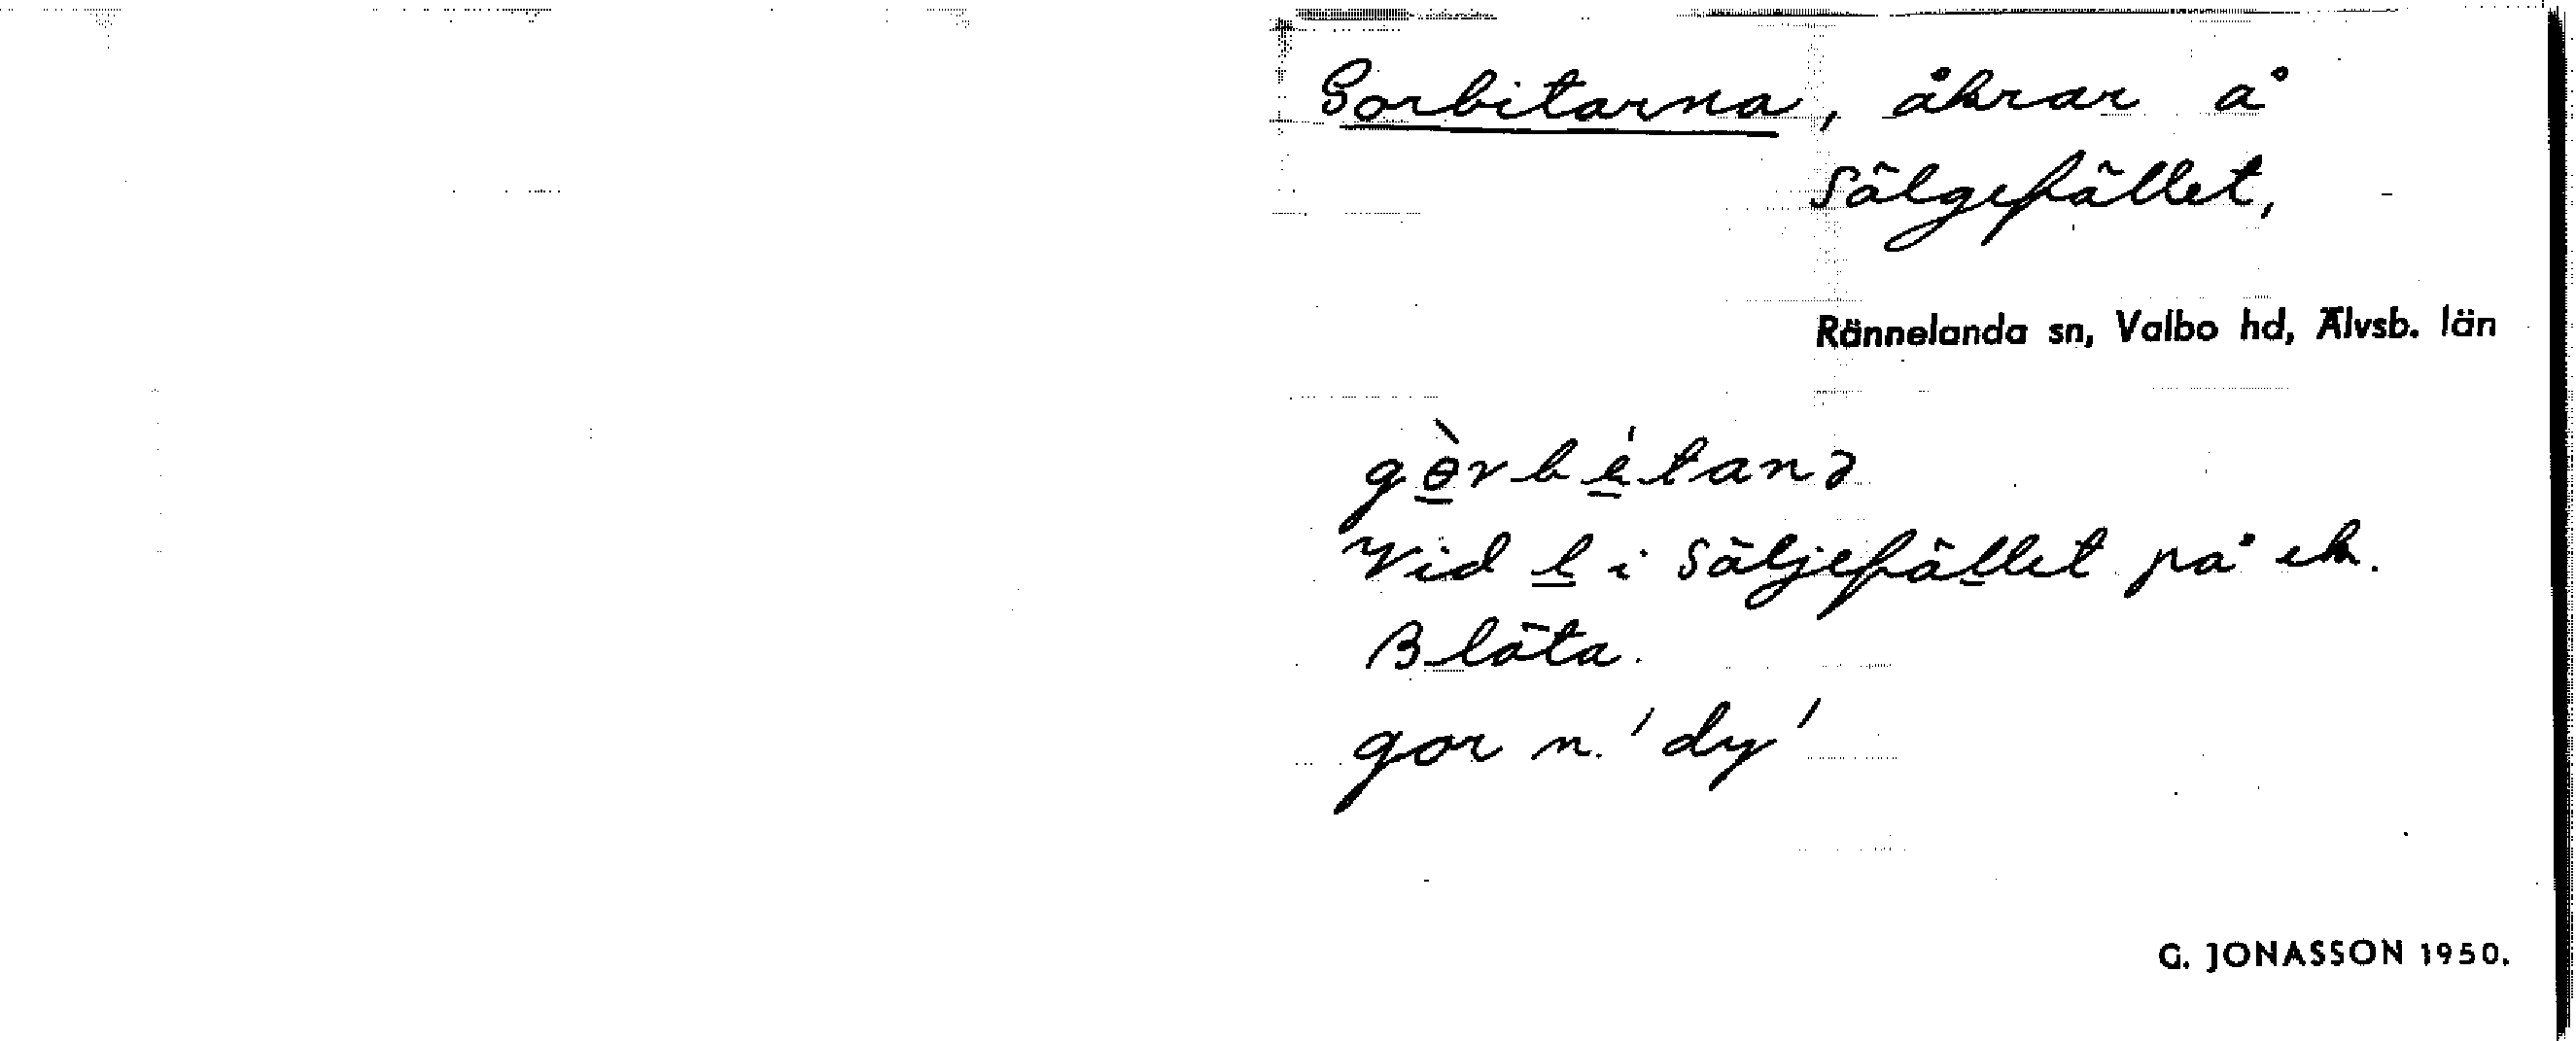 Gorbitarna, åkrar å
Sälgefället,
Rännelanda sn, Valbo hd, Älvsb. län
gɵ̀rbétanə
Vid l i Säljefället på ek.
Blöta.
gor n. 'dy'
G. JONASSON 1950.